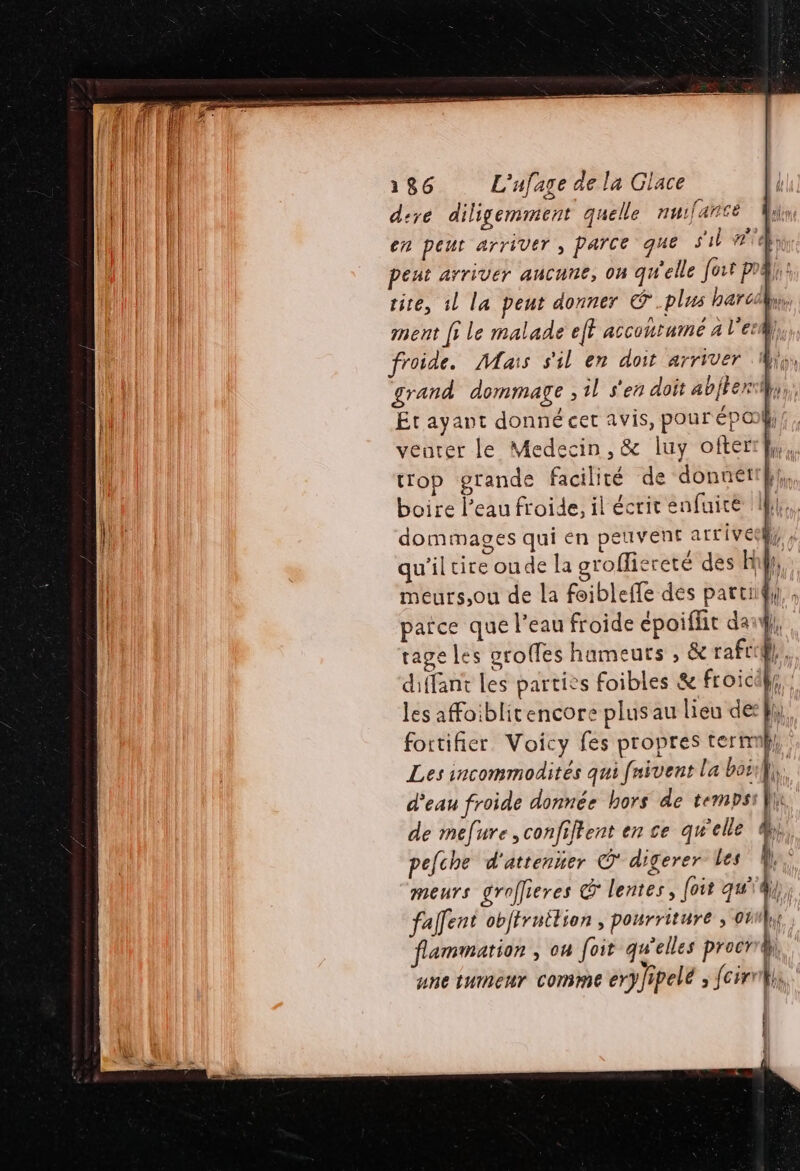 186 L'uſage de la Glace
dere diligemment quelle nuiſance
en peut arriver, parce que s'il n'
peut arriver aucune, ou qu'elle ſoit
tite, il la peut donner & plus
ment ſi le malade eſt accoûtumé à
froide. Mais s'il en doit arriver
grand dommage, il s'en doit
Et ayant donné cet avis, pour
venter le Medecin, & luy oſter
trop grande facilité de donner
boire l'eau froide, il écrit enſuite
dommages qui en peuvent
qu'il tire ou de la groſſiereté des
meurs, ou de la foibleſſe des
parce que l'eau froide époiſſit
tage les groſſes humeurs, &
diſſant les parties foibles &
les affoiblit encore plus au lieu de
fortifier. Voicy ſes propres
Les incommodités qui ſuivent la
d'eau froide donnée hors de temps
de meſure, conſiſtent en ce qu'elle
peſche d'attenüer & digerer les
meurs groſſieres & lentes, ſoit
faſſent obſtruction, pourriture,
flammation, ou ſoit qu'elles
une tumeur comme eryſipelé,